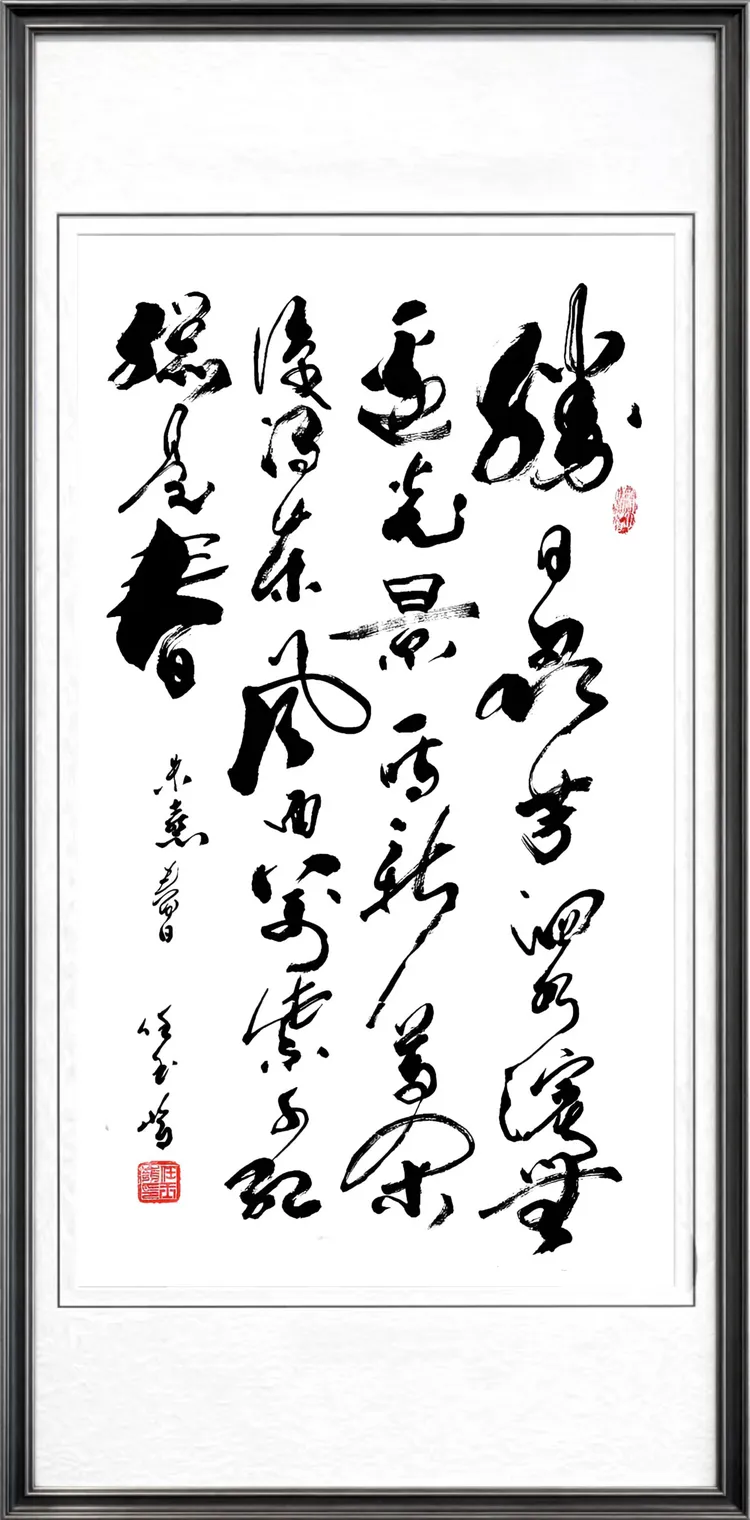 勝日尋芳泗水濱無
邊光景一時新等閑
識得東風面萬紫千紅
總是春
朱熹春日
任玉嶺